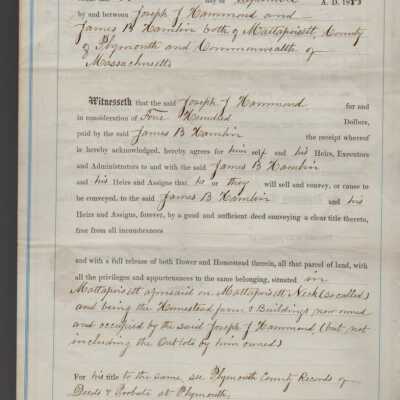 day of
A. D. 18
by and between Joseph J Hammond and
James B Hamlin both of Mattapoisett, County
of Plymouth and Commonwealth of
Massachusetts
Witnesseth that the said Joseph J Hammond for and
in consideration of Four Hundred Dollars,
paid by the said James B Hamlin the receipt whereof
is hereby acknowledged, hereby agrees for him self and his Heirs, Executors
and Administrators to and with the said James B Hamlin
and his Heirs and Assigns that he or they will sell and convey, or cause to
be conveyed, to the said James B Hamlin and his
Heirs and Assigns, forever, by a good and sufficient deed conveying a clear title thereto,
free from all incumbrances
and with a full release of both Dower and Homestead therein, all that parcel of land, with
all the privileges and appurtenances to the same belonging, situated in
Mattapoisett aforesaid on Mattapoisett Neck (so called)
and being the Homestead farm & Buildings now owned
and occupied by the said Joseph J Hammond, (but not
including the Out lots by him owned)
For his title to the same, see Plymouth County Records of
Deeds & Probate at Plymouth.